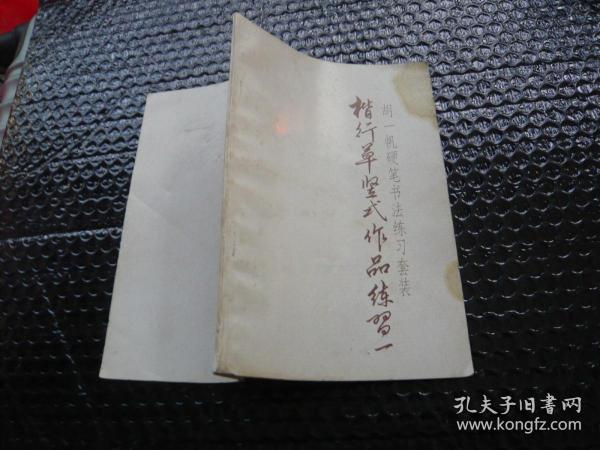 胡一帆硬笔书法练习套装
楷行草竖式作品练習一
孔夫子旧書网
www.kongfz.com